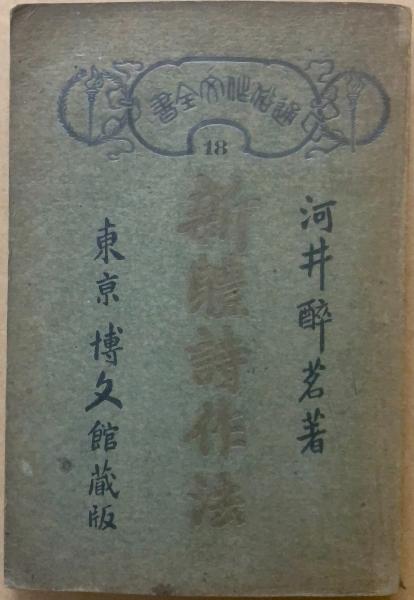 通俗作文全書
18
河井酔茗著
新體詩作法
東京 博文館蔵版